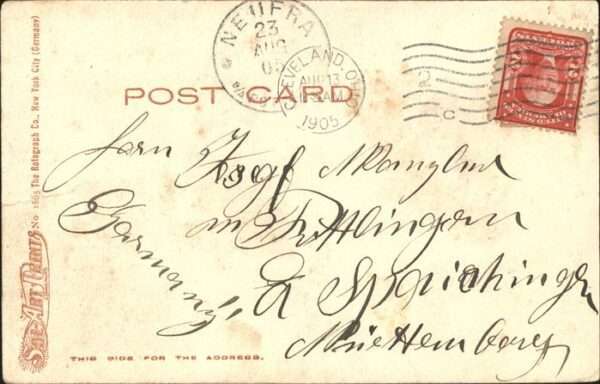 NEUFRA
23
AUG
05
CLEVELAND, OHIO
AUG 13
AM
1905
2
C
POST CARD
Herrn Josef
in
Germany
Spaichingen
Württemberg
SOL-ART PRINTS
No 1665 The Rotograph Co., New York City (Germany)
THIS SIDE FOR THE ADDRESS.